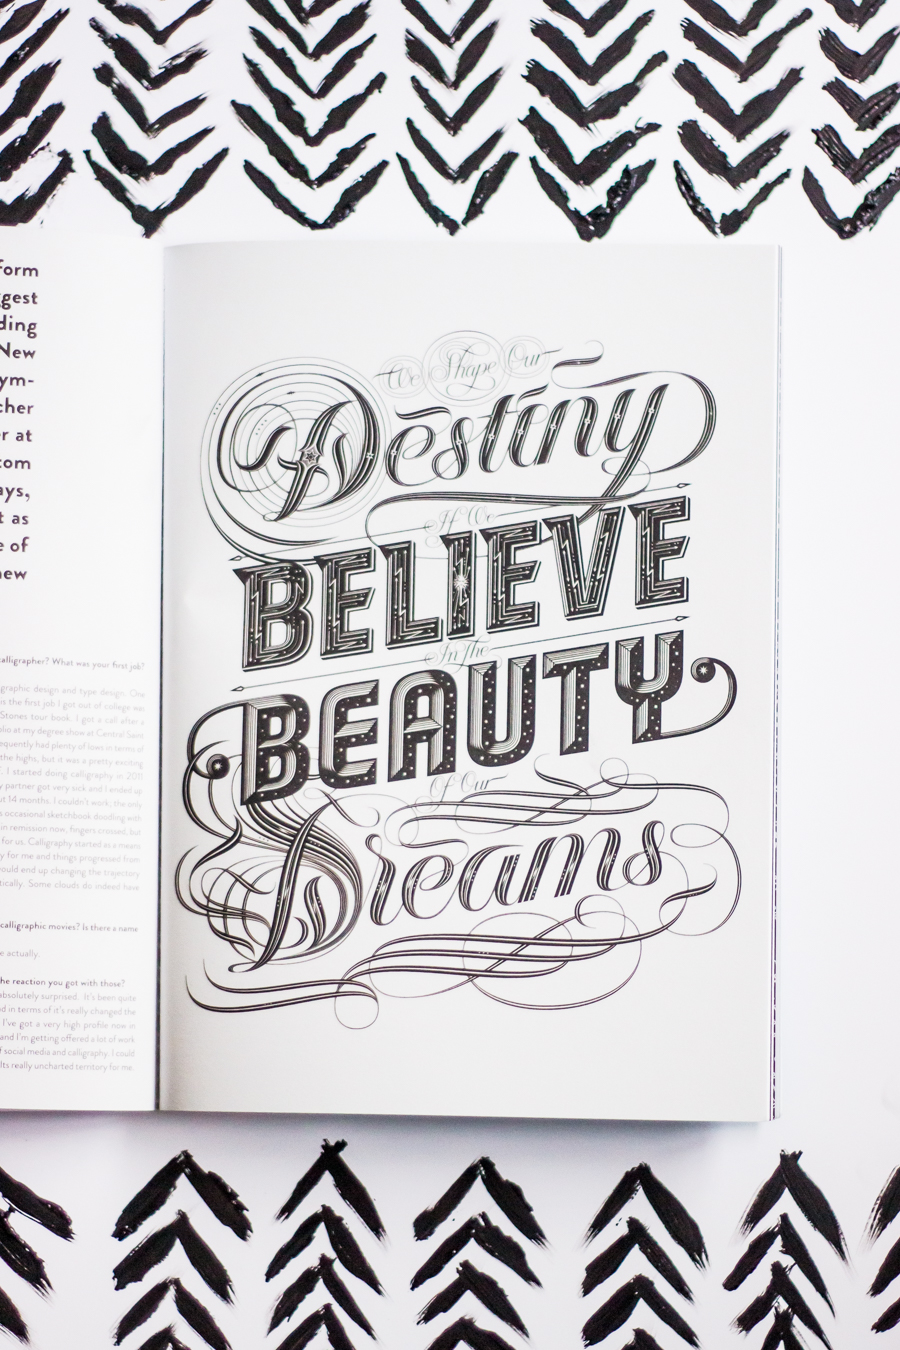 form
ggest
ding
New
ym-
cher
r at
com
ays,
t as
e of
new
calligrapher? What was your first job?
graphic design and type design. One
is the first job I got out of college was
Stones tour book. I got a call after a
olio at my degree show at Central Saint
equently had plenty of lows in terms of
the highs, but it was a pretty exciting
I started doing calligraphy in 2011
y partner got very sick and I ended up
ut 14 months. I couldn't work; the only
s occesional sketchbook doodling with
in remission now, fingers crossed, but
for us. Calligraphy started as a means
y for me and things progressed from
ould end up changing the trajectory
tically. Some clouds do indeed have
calligraphic movies? Is there a name
e actually.
he reaction you got with those?
absolutely surprised. It's been quite
d in terms of it's really changed the
I've got a very high profile now in
and I'm getting offered a lot of work
f social media and calligraphy. I could
Its really uncharted territory for me
We Shape Our
Destiny
If We
BELIEVE
In The
BEAUTY
Of Our
Dreams